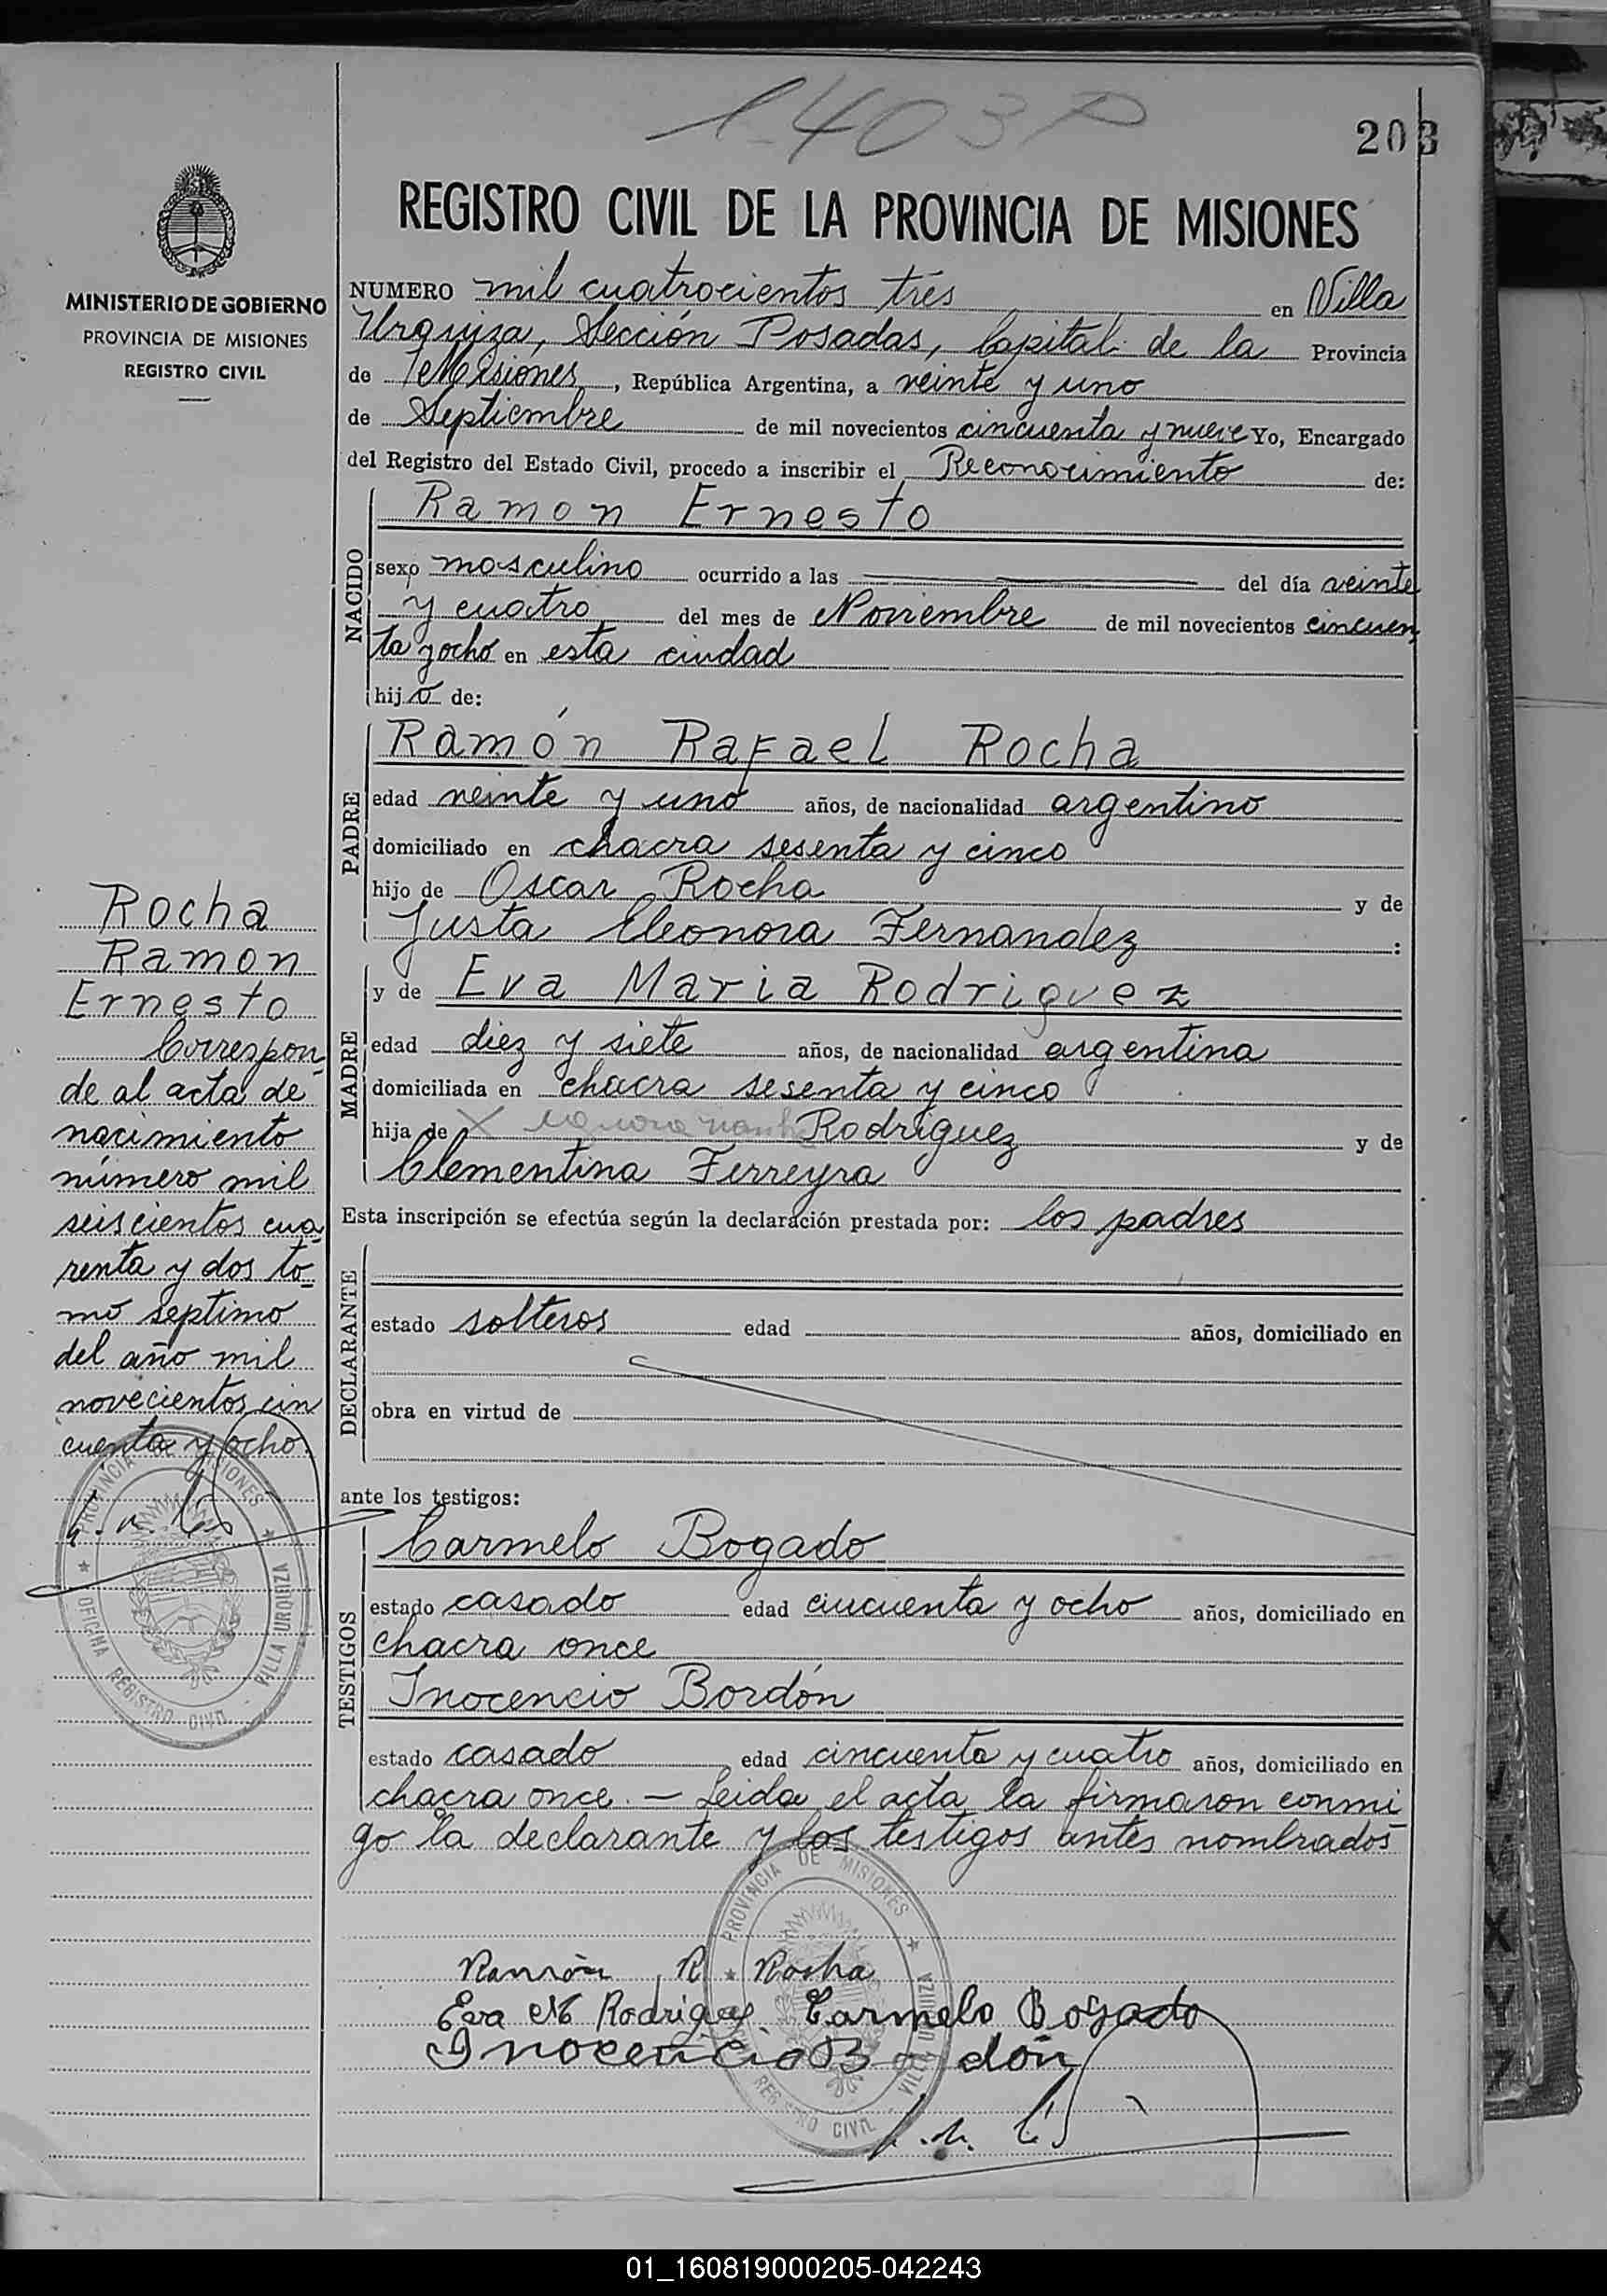 1403P
203
MINISTERIO DE GOBIERNO
PROVINCIA DE MISIONES
REGISTRO CIVIL
REGISTRO CIVIL DE LA PROVINCIA DE MISIONES
NUMERO mil cuatrocientos tres en Villa
Urquiza, Sección Posadas, Capital de la Provincia
de Misiones, República Argentina, a veinte y uno
de Septiembre de mil novecientos cincuenta y nueve Yo, Encargado
del Registro del Estado Civil, procedo a inscribir el Reconocimiento de:
NACIDO
Ramon Ernesto
sexo masculino ocurrido a las del día veinte
y cuatro del mes de Noviembre de mil novecientos cincuen
ta y ocho en esta ciudad
hijo de:
PADRE
Ramón Rafael Rocha
edad veinte y uno años, de nacionalidad argentino
domiciliado en chacra sesenta y cinco
hijo de Oscar Rocha y de
Justa Eleonora Fernandez :
MADRE
y de Eva Maria Rodriguez
edad diez y siete años, de nacionalidad argentina
domiciliada en chacra sesenta y cinco
hija de X Rodríguez y de
Clementina Ferreyra
Esta inscripción se efectúa según la declaración prestada por: los padres
DECLARANTE
estado solteros edad años, domiciliado en
obra en virtud de
ante los testigos:
TESTIGOS
Carmelo Bogado
estado casado edad cincuenta y ocho años, domiciliado en
chacra once
Inocencio Bordón
estado casado edad cincuenta y cuatro años, domiciliado en
chacra once. — Leida el acta la firmaron conmi
go la declarante y los testigos antes nombrados
Ramón R Rocha
Eva M Rodriguez Carmelo Bogado
Inocencio Bordón
PROVINCIA DE MISIONES
VILLA URQUIZA
REGISTRO CIVIL
Rocha
Ramon
Ernesto
Correspon
de al acta de
nacimiento
número mil
seiscientos cua
renta y dos to
mo septimo
del año mil
novecientos cin
cuenta y ocho.
PROVINCIA DE MISIONES
OFICINA REGISTRO CIVIL
VILLA URQUIZA
X
Y
Z
01_160819000205-042243